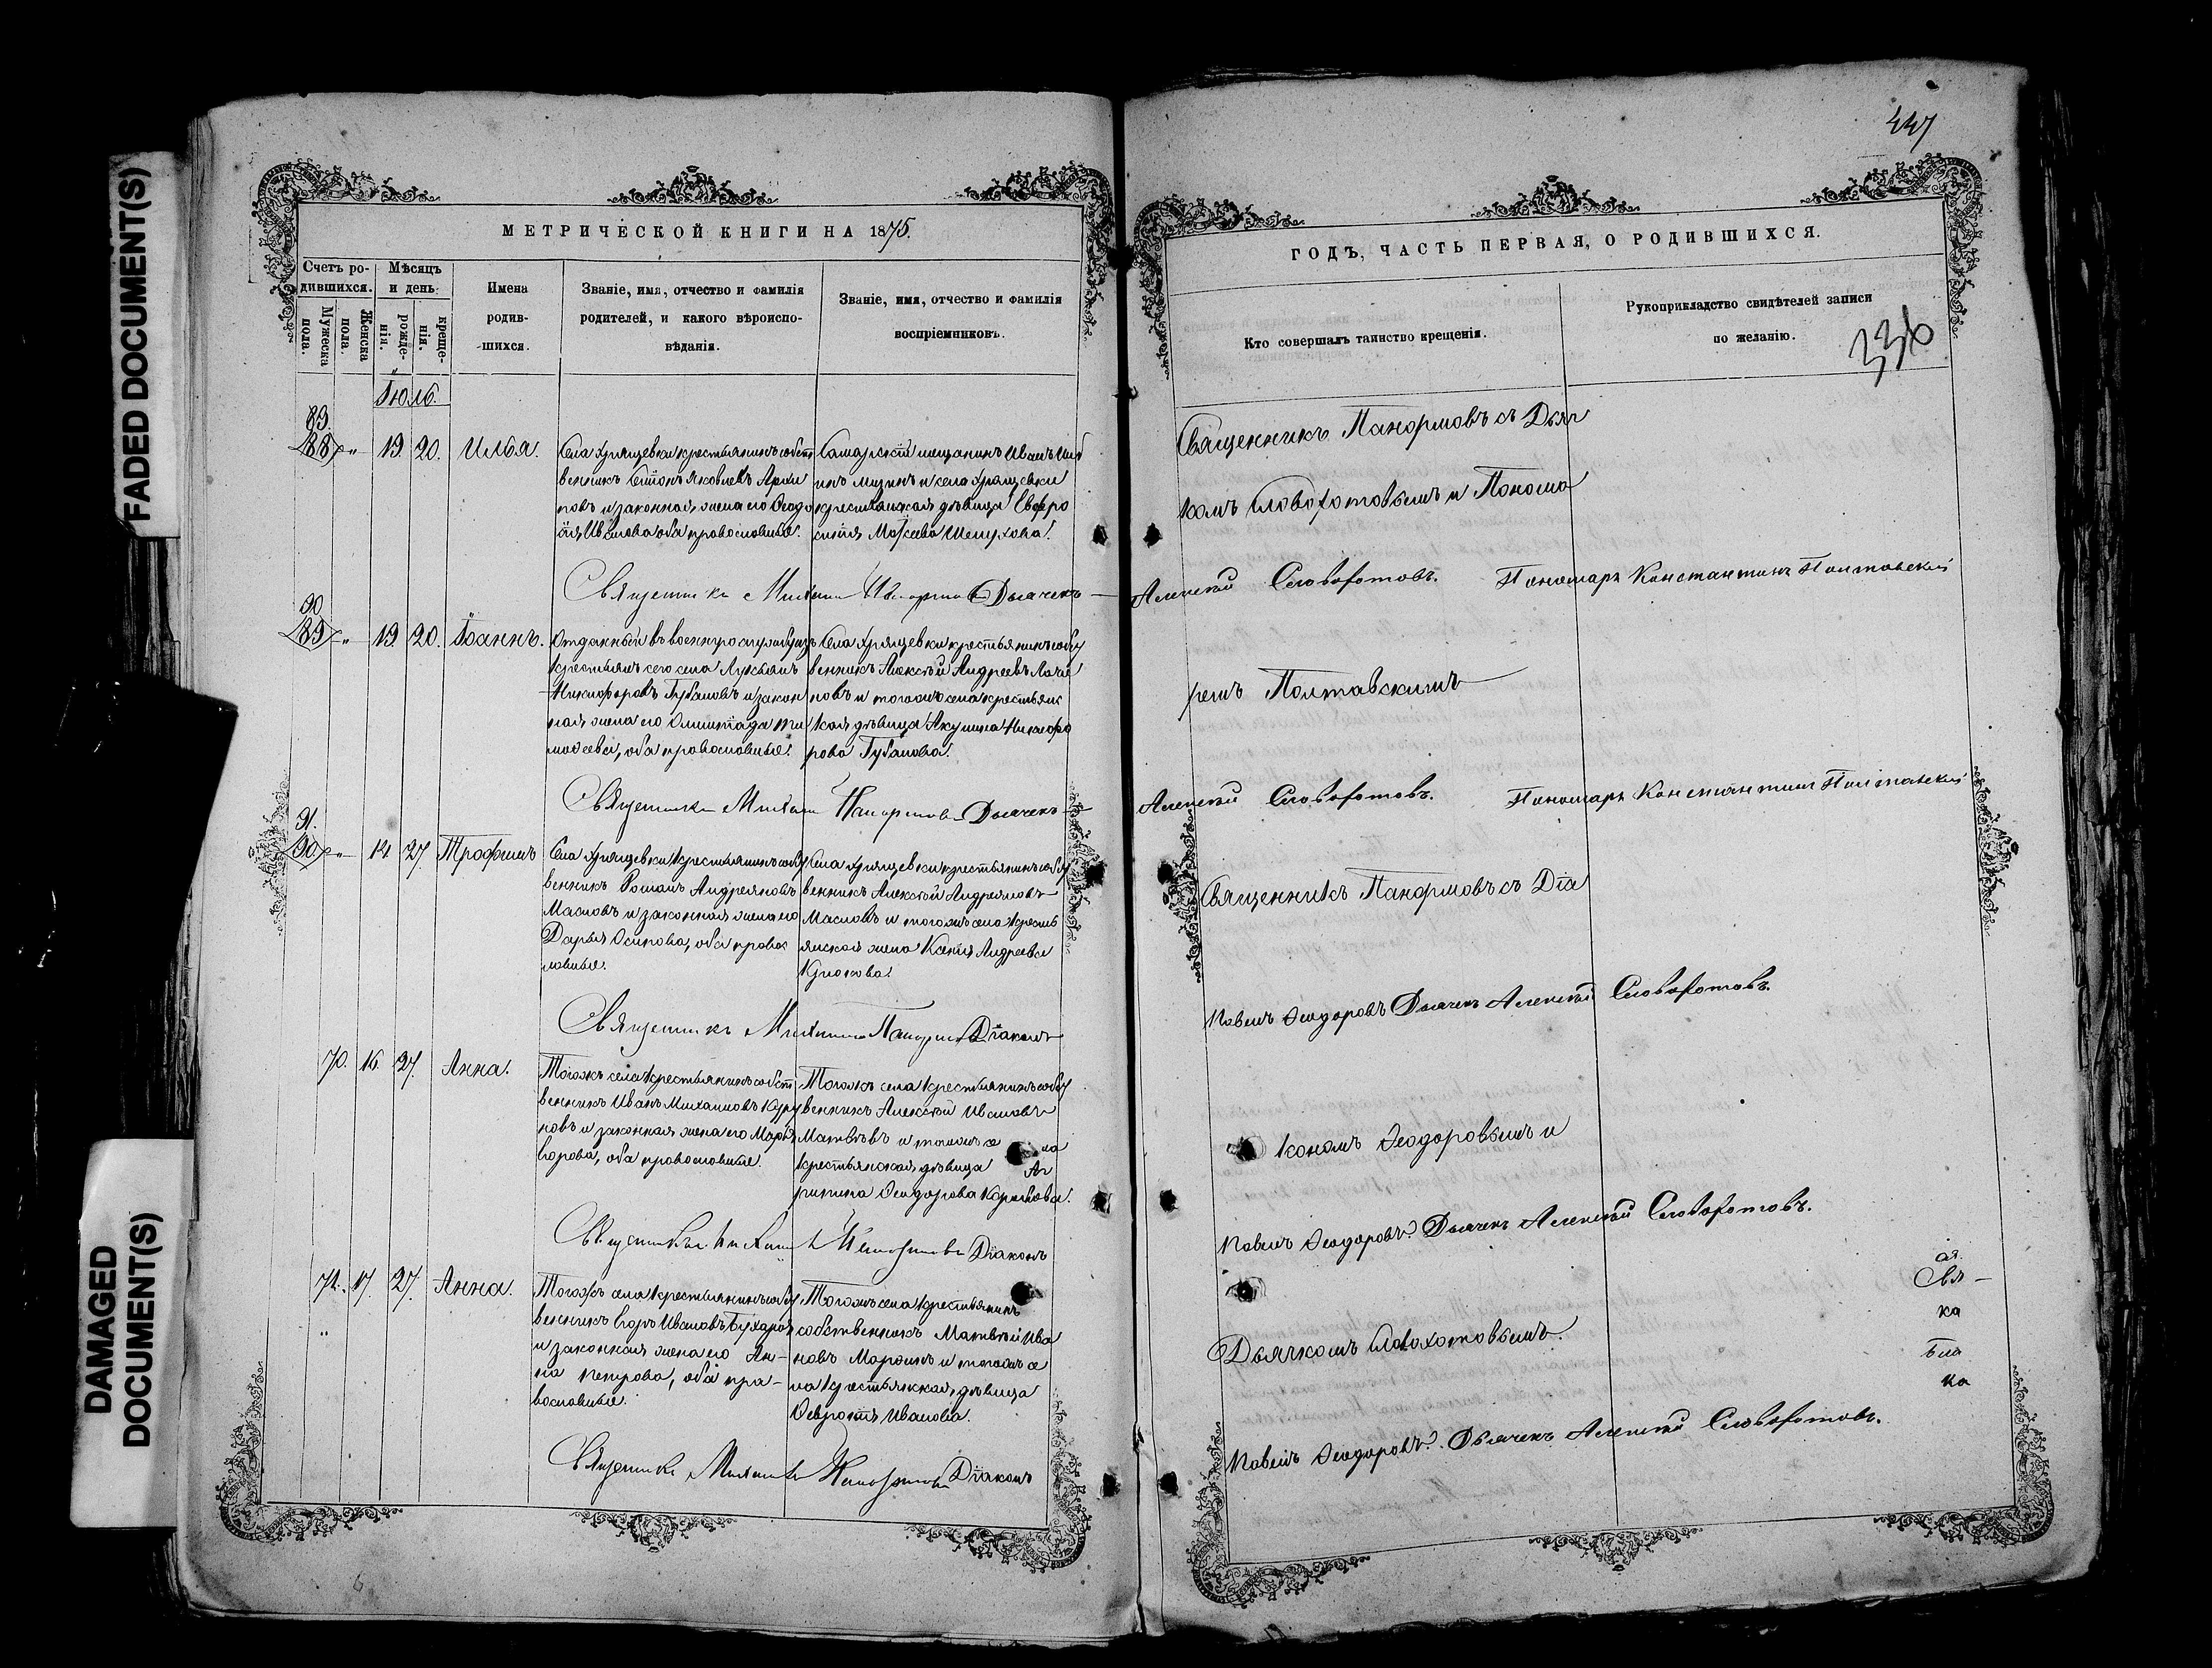 FADED DOCUMENT(S)
DAMAGED
DOCUMENT(S)
МЕТРИЧЕСКОЙ КНИГИ НА 1875.
Счетъ ро-
дившихся.
Мужеска
пола.
Женска
пола.
Мѣсяцъ
и день
рожде-
нія.
креще-
нія.
Имена
родив-
шихся.
Званіе, имя, отчество и фамилія
родителей, и какого вѣроиспо-
вѣданія.
Званіе, имя, отчество и фамилія
воспріемниковъ.
Іюль.
89.
88 " 19. 20. Илья.
Села Хрящевки крестьянинъ собст
венникъ Яковлевъ
повъ и законная жена его Ѳеодо
Иванова оба православные.
Самарскій мещанинъ Иванъ
и села Хрящевки
крестьянская дѣвица Евфро
синія
Священникъ Михаилъ Панормовъ Дьячекъ
90
89 " 19. 20. Іоаннъ.
Отданный въ военную службу изъ
крестьянъ сего села Лукьянъ
Никифоровъ Губановъ и закон
ная жена его Олимпіада Ти
моѳеева, оба православные.
Села Хрящевки крестьянинъ собст
венникъ Алексѣй Андреевъ
новъ и тогожъ села крестьянс
кая дѣвица Акулина Никифо
рова Губанова.
Священникъ Михаилъ Панормовъ Дьячекъ
91.
90 " 14 27. Трофимъ
Села Хрящевки крестьянинъ собст
венникъ Романъ Андреяновъ
Масловъ и законная жена его
Дарья Осипова, оба правос
лавные.
Села Хрящевки крестьянинъ собст
венникъ Алексѣй Андреяновъ
Масловъ и тогожъ села кресть
янская жена Ксенія Андреева
Крюкова.
Священникъ Михаилъ Панормовъ Діаконъ
70. 16. 27. Анна.
Тогожъ села крестьянинъ собст
венникъ Иванъ Михаиловъ
новъ и законная жена его Марья
Егорова, оба православные.
Тогожъ села крестьянинъ собст
венникъ Алексѣй Ивановъ
Матвѣевъ и тогожъ се ла
крестьянская дѣвица Аг
рипина Ѳеодорова
Священникъ Михаилъ Панормовъ Діаконъ
71. 17. 27. Анна.
Тогожъ села крестьянинъ собст
венникъ Егоръ Ивановъ Бухаровъ
и законная жена его Ан-
на Петрова, оба пра-
вославные.
Тогожъ села крестьянинъ
собственникъ Матвѣй Ива
новъ и тогожъ се
ла крестьянская дѣвица
Иванова.
Священникъ Михаилъ Панормовъ Діаконъ
447
ГОДЪ, ЧАСТЬ ПЕРВАЯ, О РОДИВШИХСЯ.
Кто совершалъ таинство крещенія.
Рукоприкладство свидѣтелей записи
по желанію.
336
Священникъ Панормовъ съ Дьяч
комъ Словохотовымъ и Понома
Алексѣй Словохотовъ. Пономарь Константинъ Полтавскій
ремъ Полтавскимъ
Алексѣй Словохотовъ. Пономарь Константинъ Полтавскій
Священникъ Панормовъ съ Діа
Павелъ Ѳеодоровъ Дьячекъ Алексѣй Словохотовъ.
кономъ Ѳеодоровымъ и
Павелъ Ѳеодоровъ. Дьячекъ Алексѣй Словохотовъ.
Свя-
ка
Дьячкомъ Словохотовымъ.
ка
Павелъ Ѳеодоровъ. Дьячекъ Алексѣй Словохотовъ.